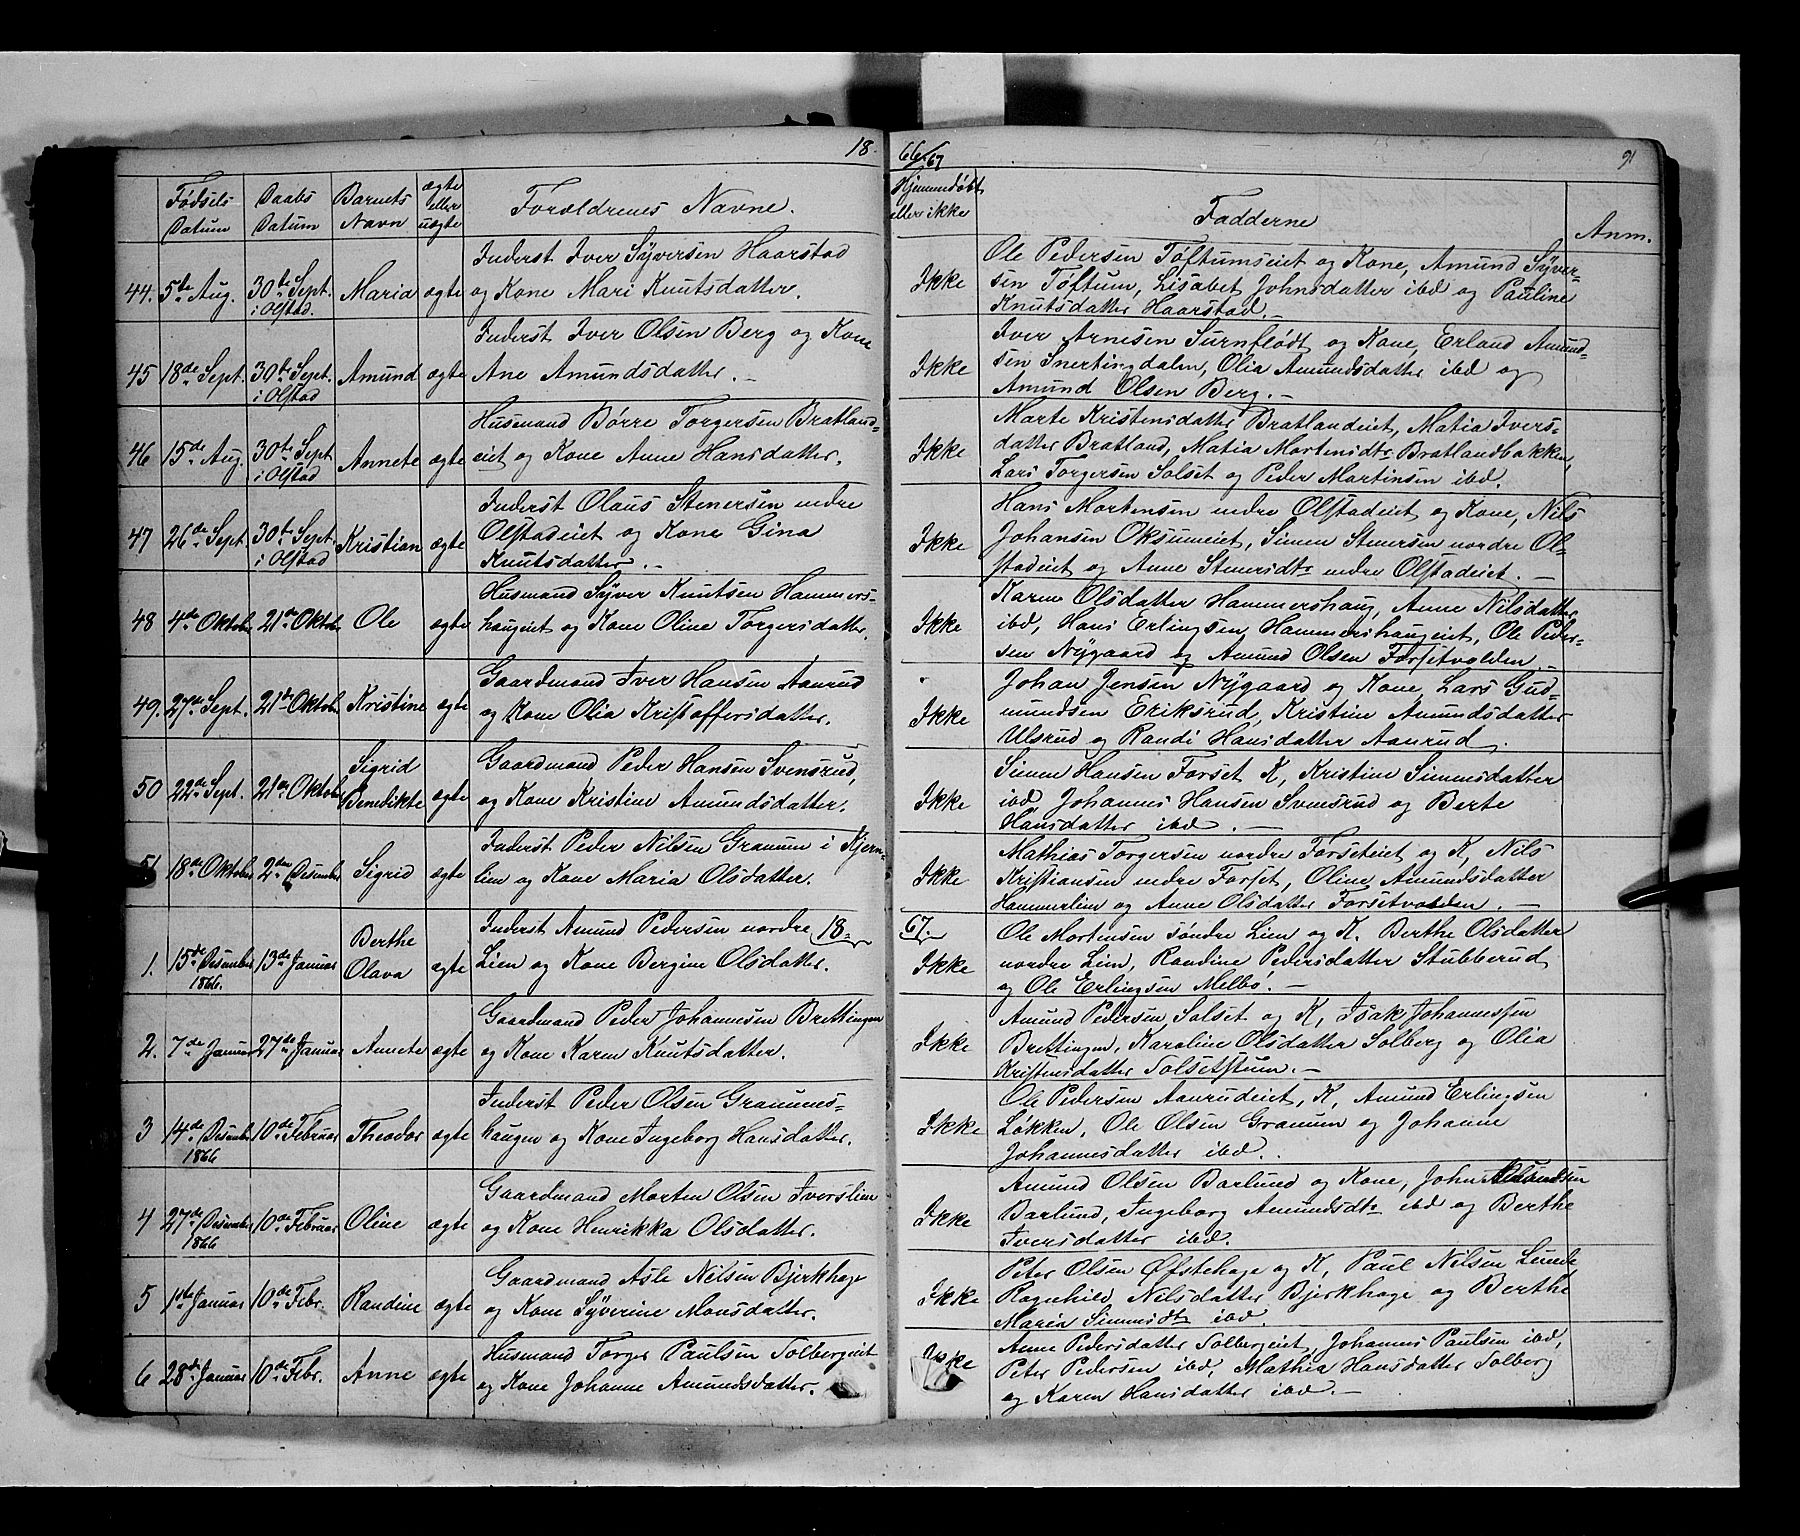 18 66/67 91
Fødsels Datum Daabs Datum Barnets Navn ægte eller uægte Forældrenes Navne. Hjemmedøbt eller ikke Fadderne Anm.
44. 5te Aug. 30te Sept. i Olstad. Maria ægte
Inderst Iver Syversen Haarstad
og Kone Mari Knutsdatter.
Ikke
Ole Pedersen Toftumseiet og Kone, Amund Syver-
sen Toftum, Lisabet Johnsdatter ibd og Pauline
Knutsdatter Haarstad.
45 18de Sept. 30te Sept. i Olstad Amund ægte
Inderst Iver Olsen Berg og Kone
Ane Amundsdatter.
Ikke
Iver Arnesen Surnflødt og Kone, Erland Amund-
sen Snertingdalen, Olia Amundsdatter ibd og
Amund Olsen Berg.
46 15de Aug. 30te Sept i Olstad Annete ægte
Husmand Børre Torgersen Bratland-
eiet og Kone Anne Hansdatter.
Ikke
Marte Kristensdatter Bratlandeiet, Matia Ivers-
datter Bratland, Matia Mortensdtr Bratlandbakken,
Lars Torgersen Solset og Peder Martinsen ibd.
47 26de Sept. 30te Sept. i Olstad Kristian ægte
Inderst Olaus Stenersen nedre
Olstadeiet og Kone Gina
Knutsdatter.
Ikke
Hans Mortensen nedre Olstadeiet og Kone, Nils
Johansen Oksumeiet, Simen Stenersen nordre Ol-
stadeiet og Anne Stenersdtr nedre Olstadeiet.
48 4de Oktober 21de Oktober Ole ægte
Husmand Syver Knutsen Hammers-
haugeiet og Kone Oline Torgersdatter.
Ikke
Karen Olsdatter Hammershaug, Anne Nilsdatter
ibd, Hans Erlingsen Hammershaugeiet, Ole Peder-
sen Nygaard og Amund Olsen Forsetvolden.
49. 27de Sept. 21de Oktober Kristine ægte
Gaardmand Iver Hansen Aanrud
og Kone Olia Kristoffersdatter.
Ikke
Johan Jensen Nygaard og Kone, Lars Gud-
mundsen Eriksrud, Kristine Amundsdatter
Ulsrud og Randi Hansdatter Aanrud.
50 22de Sept. 21de Oktober Sigrid Benedikte ægte
Gaardmand Peder Hansen Svensrud,
og Kone Kristine Amundsdatter.
Ikke
Simen Hansen Forset K, Kristine Simensdatter
ibd, Johannes Hansen Svensrud og Berte
Hansdatter ibd.
51 18de Oktober 2den Desember Sigrid ægte
Inderst Peder Nilsen Graum i Kjern-
lien og Kone Maria Olsdatter.
Ikke
Mathias Torgersen nordre Forseteiet og K, Nils
Kristiansen nedre Forset, Oline Amundsdatter
Hammerlien og Anne Olsdatter Forsetvolden.
18 67.
1. 15de Desember 1866. 13de Januar Berthe Olava ægte
Inderst Amund Pedersen nordre
Lien og Kone Bergine Olsdatter.
Ikke
Ole Mortensen søndre Lien og K. Berthe Olsdatter
nordre Lien, Randine Pedersdatter Stubberud
og Ole Erlingsen Melbø.
2. 7de Januar 27de Januar Annete ægte
Gaardmand Peder Johannesen Brettingen
og Kone Karen Knutsdatter.
Ikke
Amund Pedersen Solset og K, Isak Johannessen
Brettingen, Karoline Olsdatter Solberg og Olia
Kristensdatter Solsetstuen.
3 14de Desember 1866 10de Februar Theodor ægte
Inderst Peder Olsen Graumes-
haugen og Kone Ingeborg Hansdatter.
Ikke
Ole Pedersen Aanrudeiet, K, Amund Erlingsen
Løkken, Ole Olsen Graum og Johanne
Johannesdatter ibd.
4 27de Desember 1866 10de Februar Oline ægte
Gaardmand Morten Olsen Iverslien
og Kone Henrikka Olsdatter.
Ikke
Amund Olsen Barlund og Kone, John Amundsen
Barlund, Ingeborg Amundsdtr ibd og Berthe
Iversdatter ibd.
5 1ste Januar 10de Febr. Randine ægte
Gaardmand Asle Nilsen Bjerkhage
og Kone Syverine Monsdatter.
Ikke
Peter Olsen Øfstehage og K, Paul Nilsen Lunde
Ragnhild Nilsdatter Bjerkhage og Berthe
Maria Simensdtr ibd.
6 28de Januar 10de Febr. Anne ægte
Husmand Torger Paulsen Solbergeiet
og Kone Johanne Amundsdatter.
Ikke
Anne Pedersdatter Solbergeiet, Johannes Paulsen ibd,
Peter Pedersen ibd, Mathea Hansdatter Solberg
og Karen Hansdatter ibd.